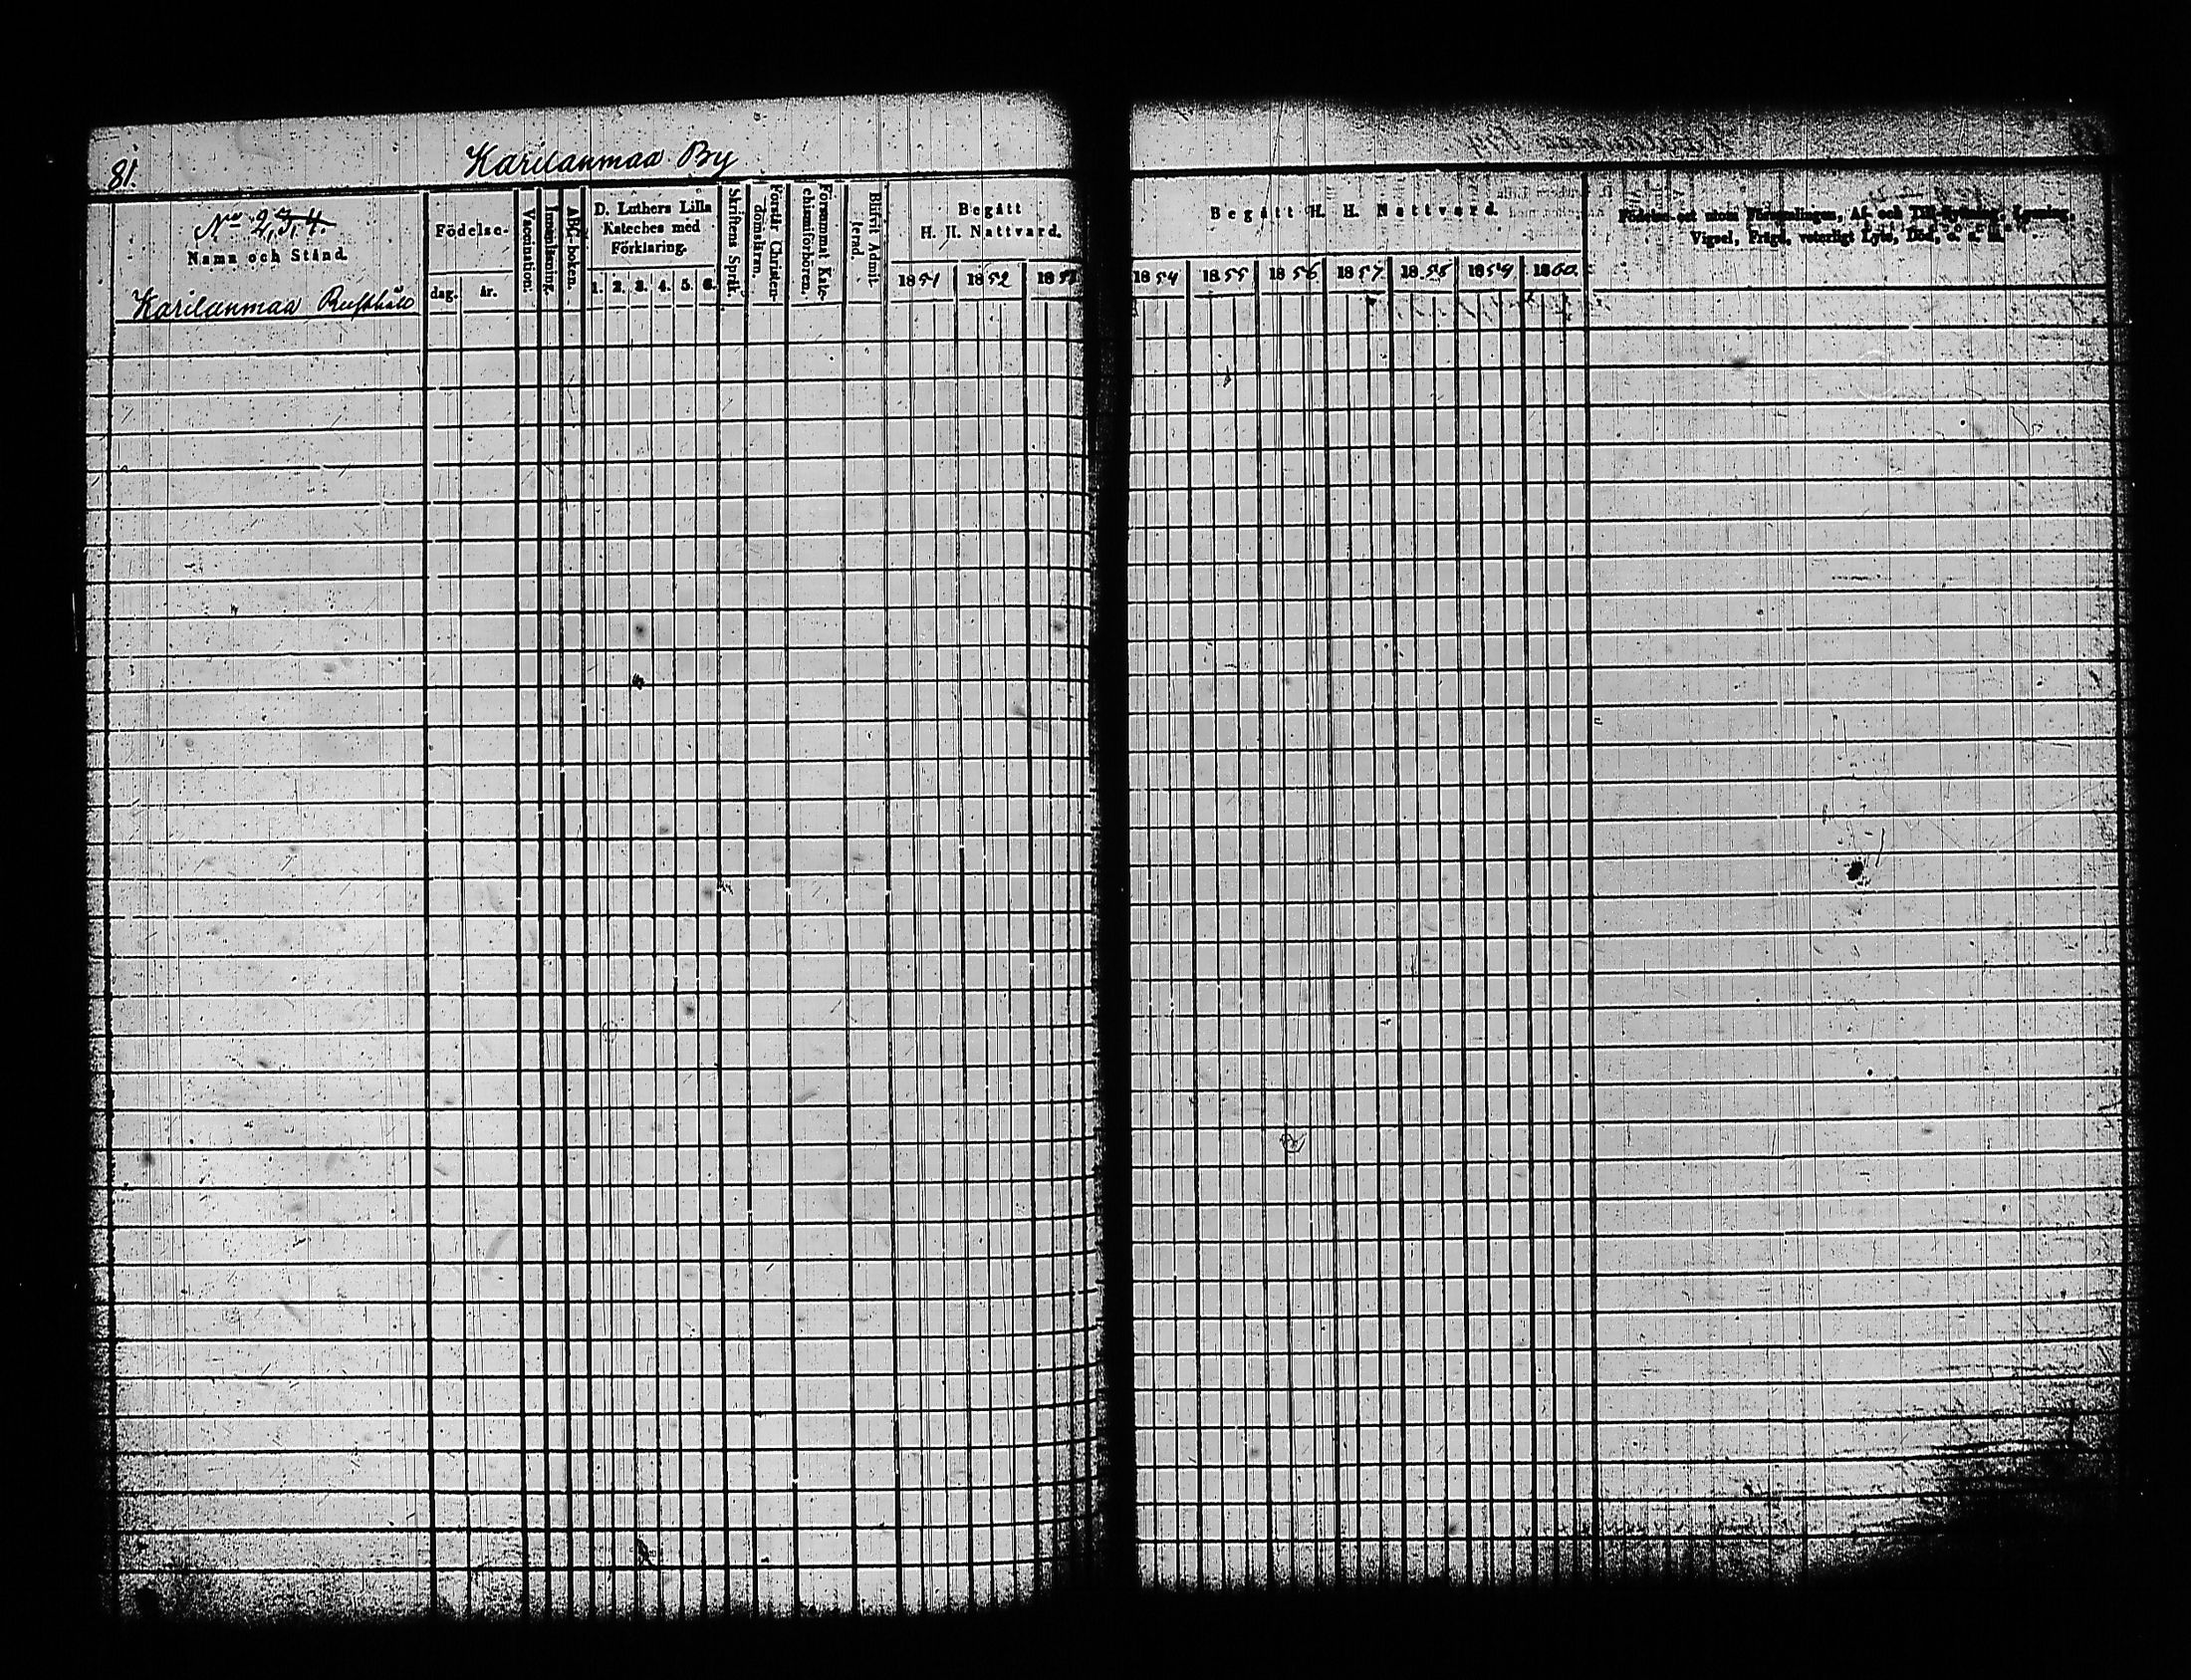 81.
Karilanmaa By
No 2, 3, 4.
Namn och Stånd.
Födelse-
dag.
år.
Vaccination.
Innanläsning.
ABC-boken.
D. Luthers Lilla
Kateches med
Förklaring.
1. 2. 3. 4. 5. 6.
Skriftens Språk.
Förstår Christen-
domsläran.
Försummat Kate-
chismiförhören.
Blifvit Admit-
terad.
Begått
H. H. Nattvard.
1851 1852 1853
Karilanmaa Rusthåll
Begått H. H. Nattvard.
1854 1855 1856 1857 1858 1859 1860.
Födelse-ort utom Församlingen, Af- och Till-flyttning, Lysning,
Vigsel, Frägd, veterligt Lyte, Död, o. s. m.